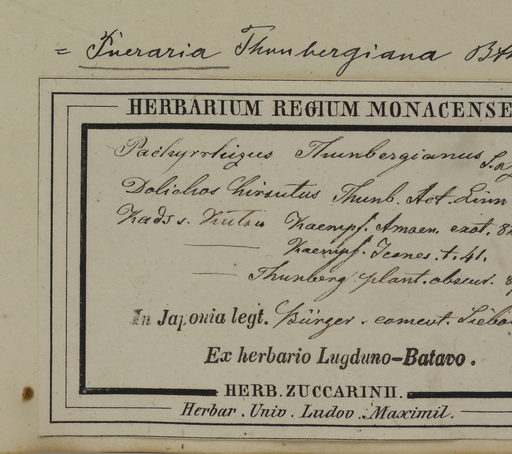 = Pueraria Thunbergiana Bth
HERBARIUM REGIUM MONACENSE
Pachyrrhizus Thunbergianus S.
Dolichos hirsutus Thunb. Act. Linn
Kads s. Kutsu Kaempf. Amoen. exot.
Kaempf. Icones. t. 41.
Thunberg plant. obscur.
In Japonia legt. Bürger. comevt. Siebo
Ex herbario Lugduno-Batavo.
HERB. ZUCCARINII.
Herbar. Univ. Ludov. Maximil.